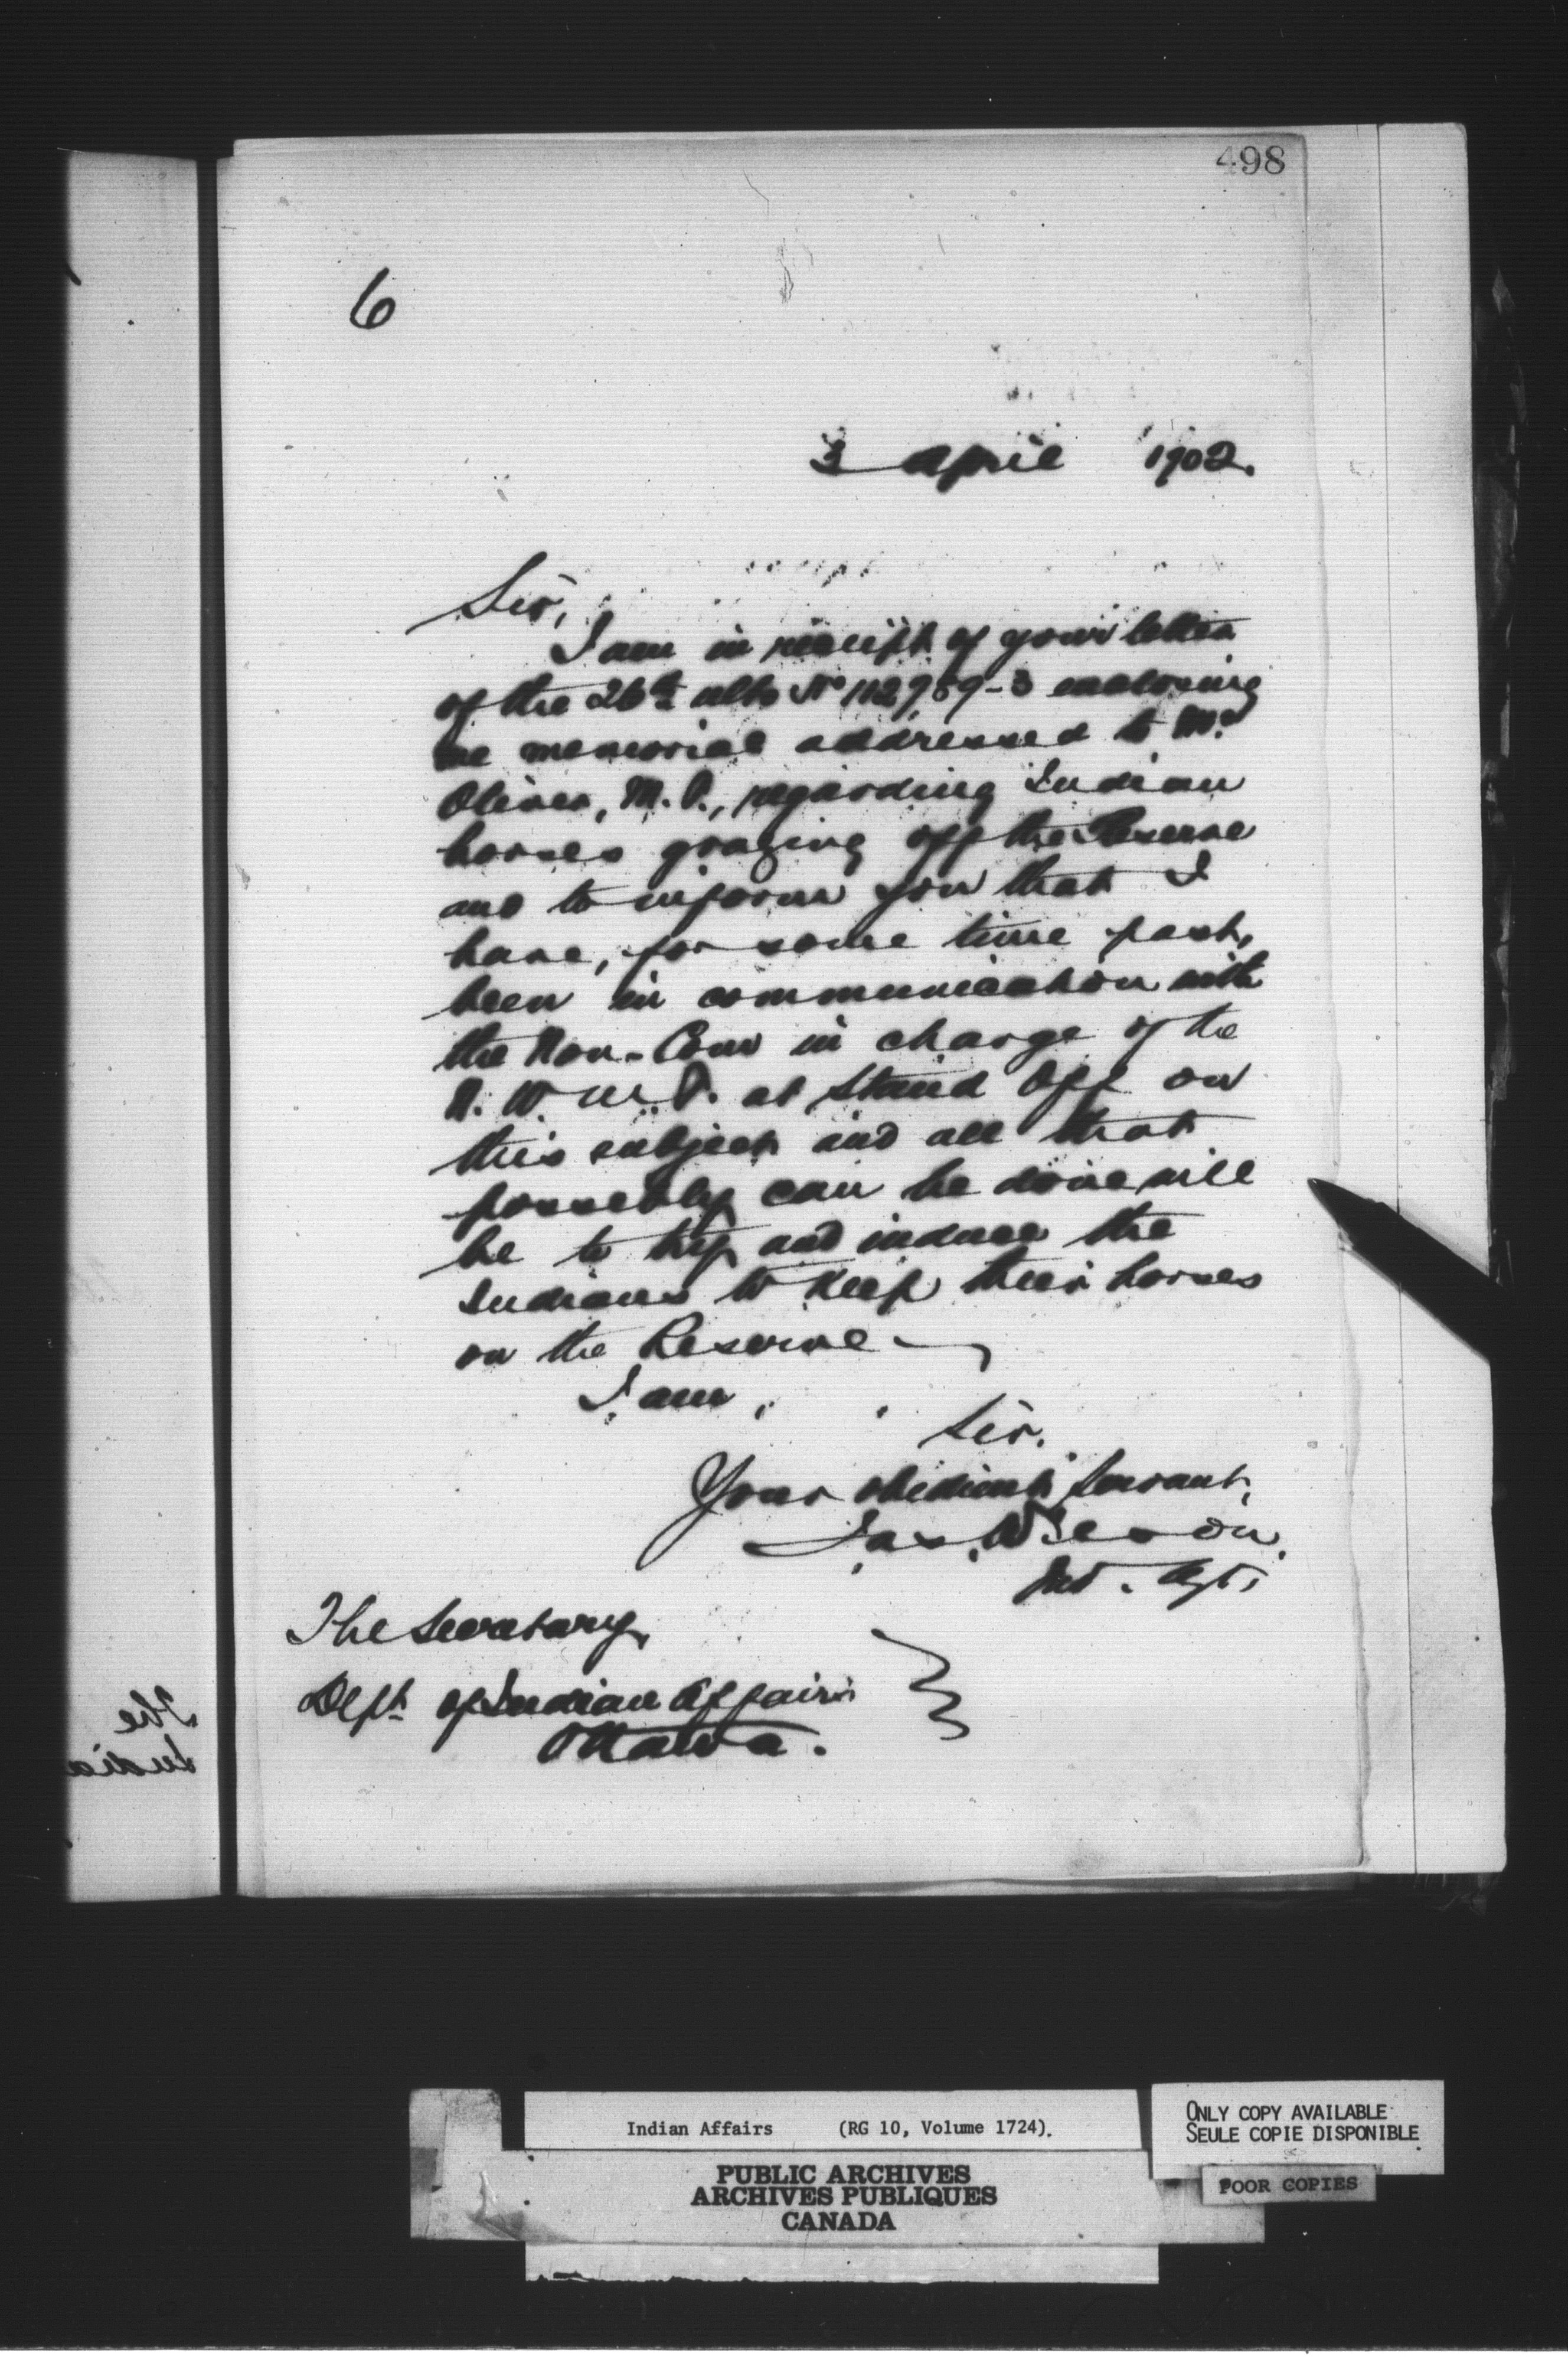 498
6
3 April 1902.
Sir,
I am in receipt of your letter
of the 26th ulto No 112,989-3 enclosing
me memorial addressed to Mr
Oliver, M.P., regarding Indian
horses grazing off the Reserve
and to inform you that I
have, for some time past,
been in communication with
the Non-Com in charge of the
N.W.M.P. at Stand Off on
this subject and all that
possibly can be done will
be to try and induce the
Indians to keep their horses
on the Reserve
I am,
Sir.
Your obedient Servant,
Jas. Wilson
Ind. Agt.
The Secretary
Dept of Indian Affairs
Ottawa.
The
India
Indian Affairs (RG 10, Volume 1724).
PUBLIC ARCHIVES
ARCHIVES PUBLIQUES
CANADA
ONLY COPY AVAILABLE
SEULE COPIE DISPONIBLE
POOR COPIES